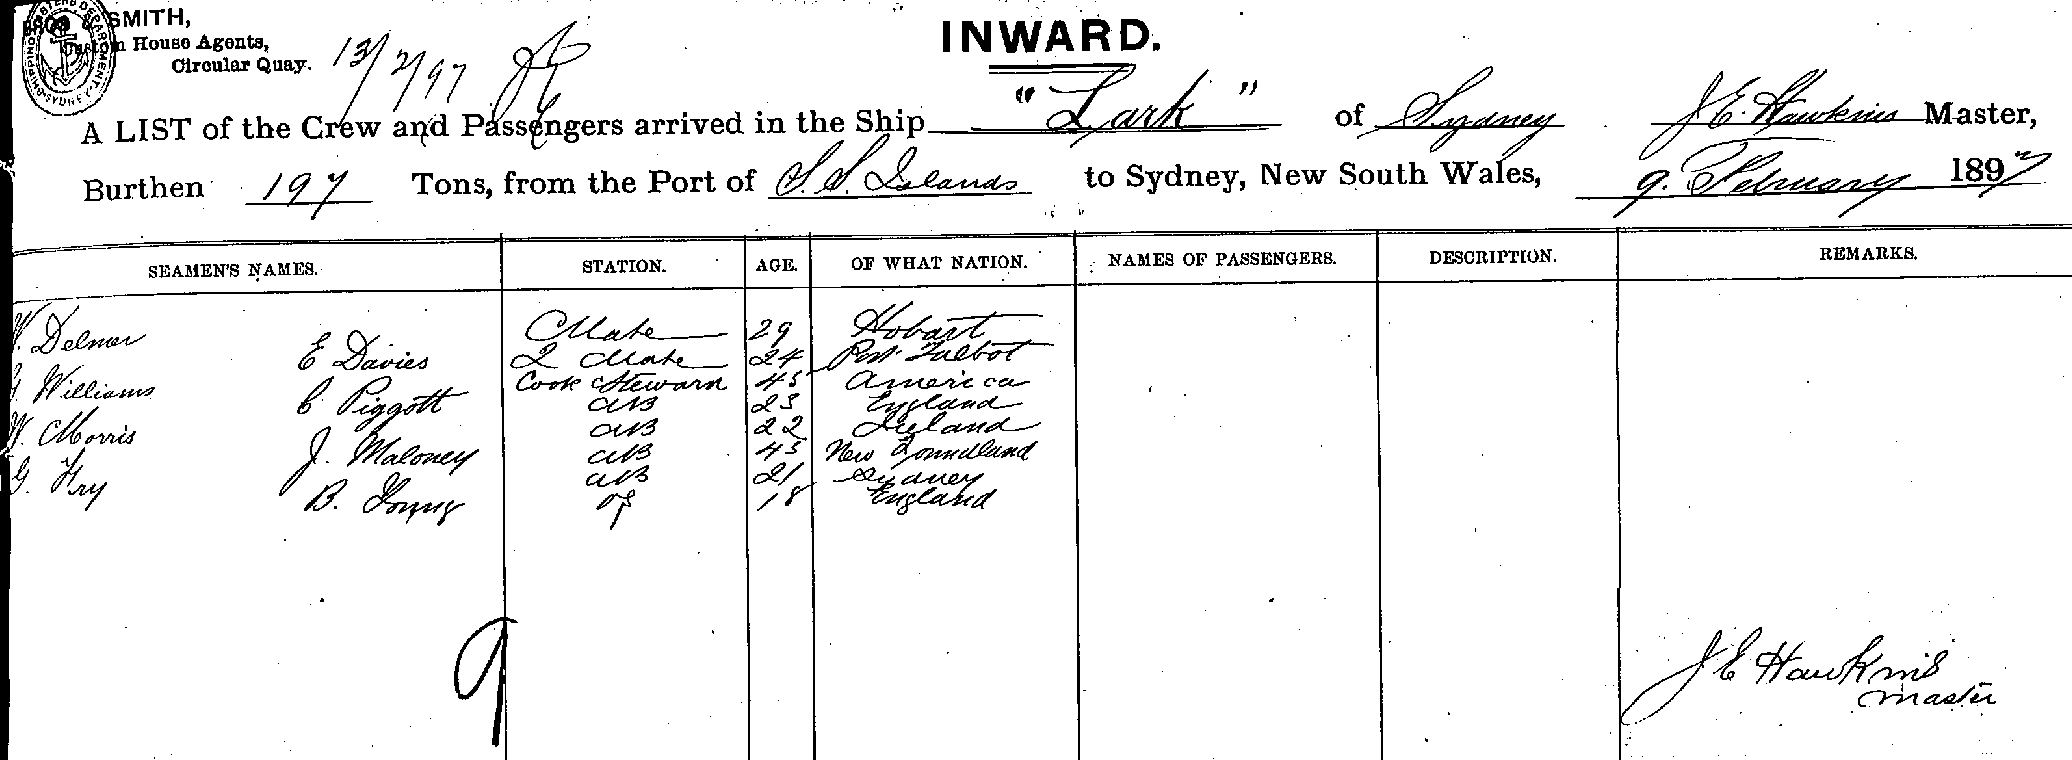 SMITH,
Custom House Agents,
Circular Quay. 13/2/97
INWARD.
A LIST of the Crew and Passengers arrived in the Ship "Lark" of Sydney J. E. Hawkins Master,
Burthen 197 Tons, from the Port of S. S. Islands to Sydney, New South Wales, 9. February 1897
SEAMEN'S NAMES. STATION. AGE. OF WHAT NATION. NAMES OF PASSENGERS. DESCRIPTION. REMARKS.
W. Delmer Mate 29 Hobart
E Davies 2 Mate 24 Port Talbot
Williams Cook Steward 45 America
C Piggott AB 23 England
W. Morris AB 22 Ireland
J. Maloney AB 45 New Foundland
G. Fry AB 21 Sydney
B. Young OS 18 England
9
J E Hawkins
Master